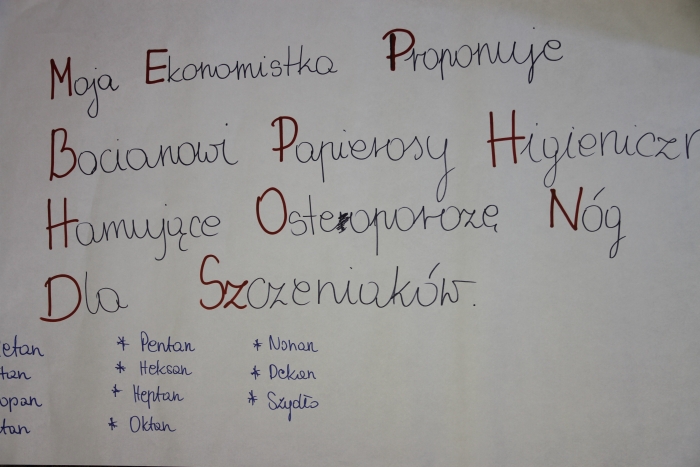 Moja Ekonomistka Proponuje
Bocianowi Papierosy Higieniczn
Hamujące Osteoporozę Nóg
Dla Szczeniaków.
etan
tan
opan
tan
* Pentan
* Heksan
* Heptan
* Oktan
* Nonan
* Dekan
* Szydło